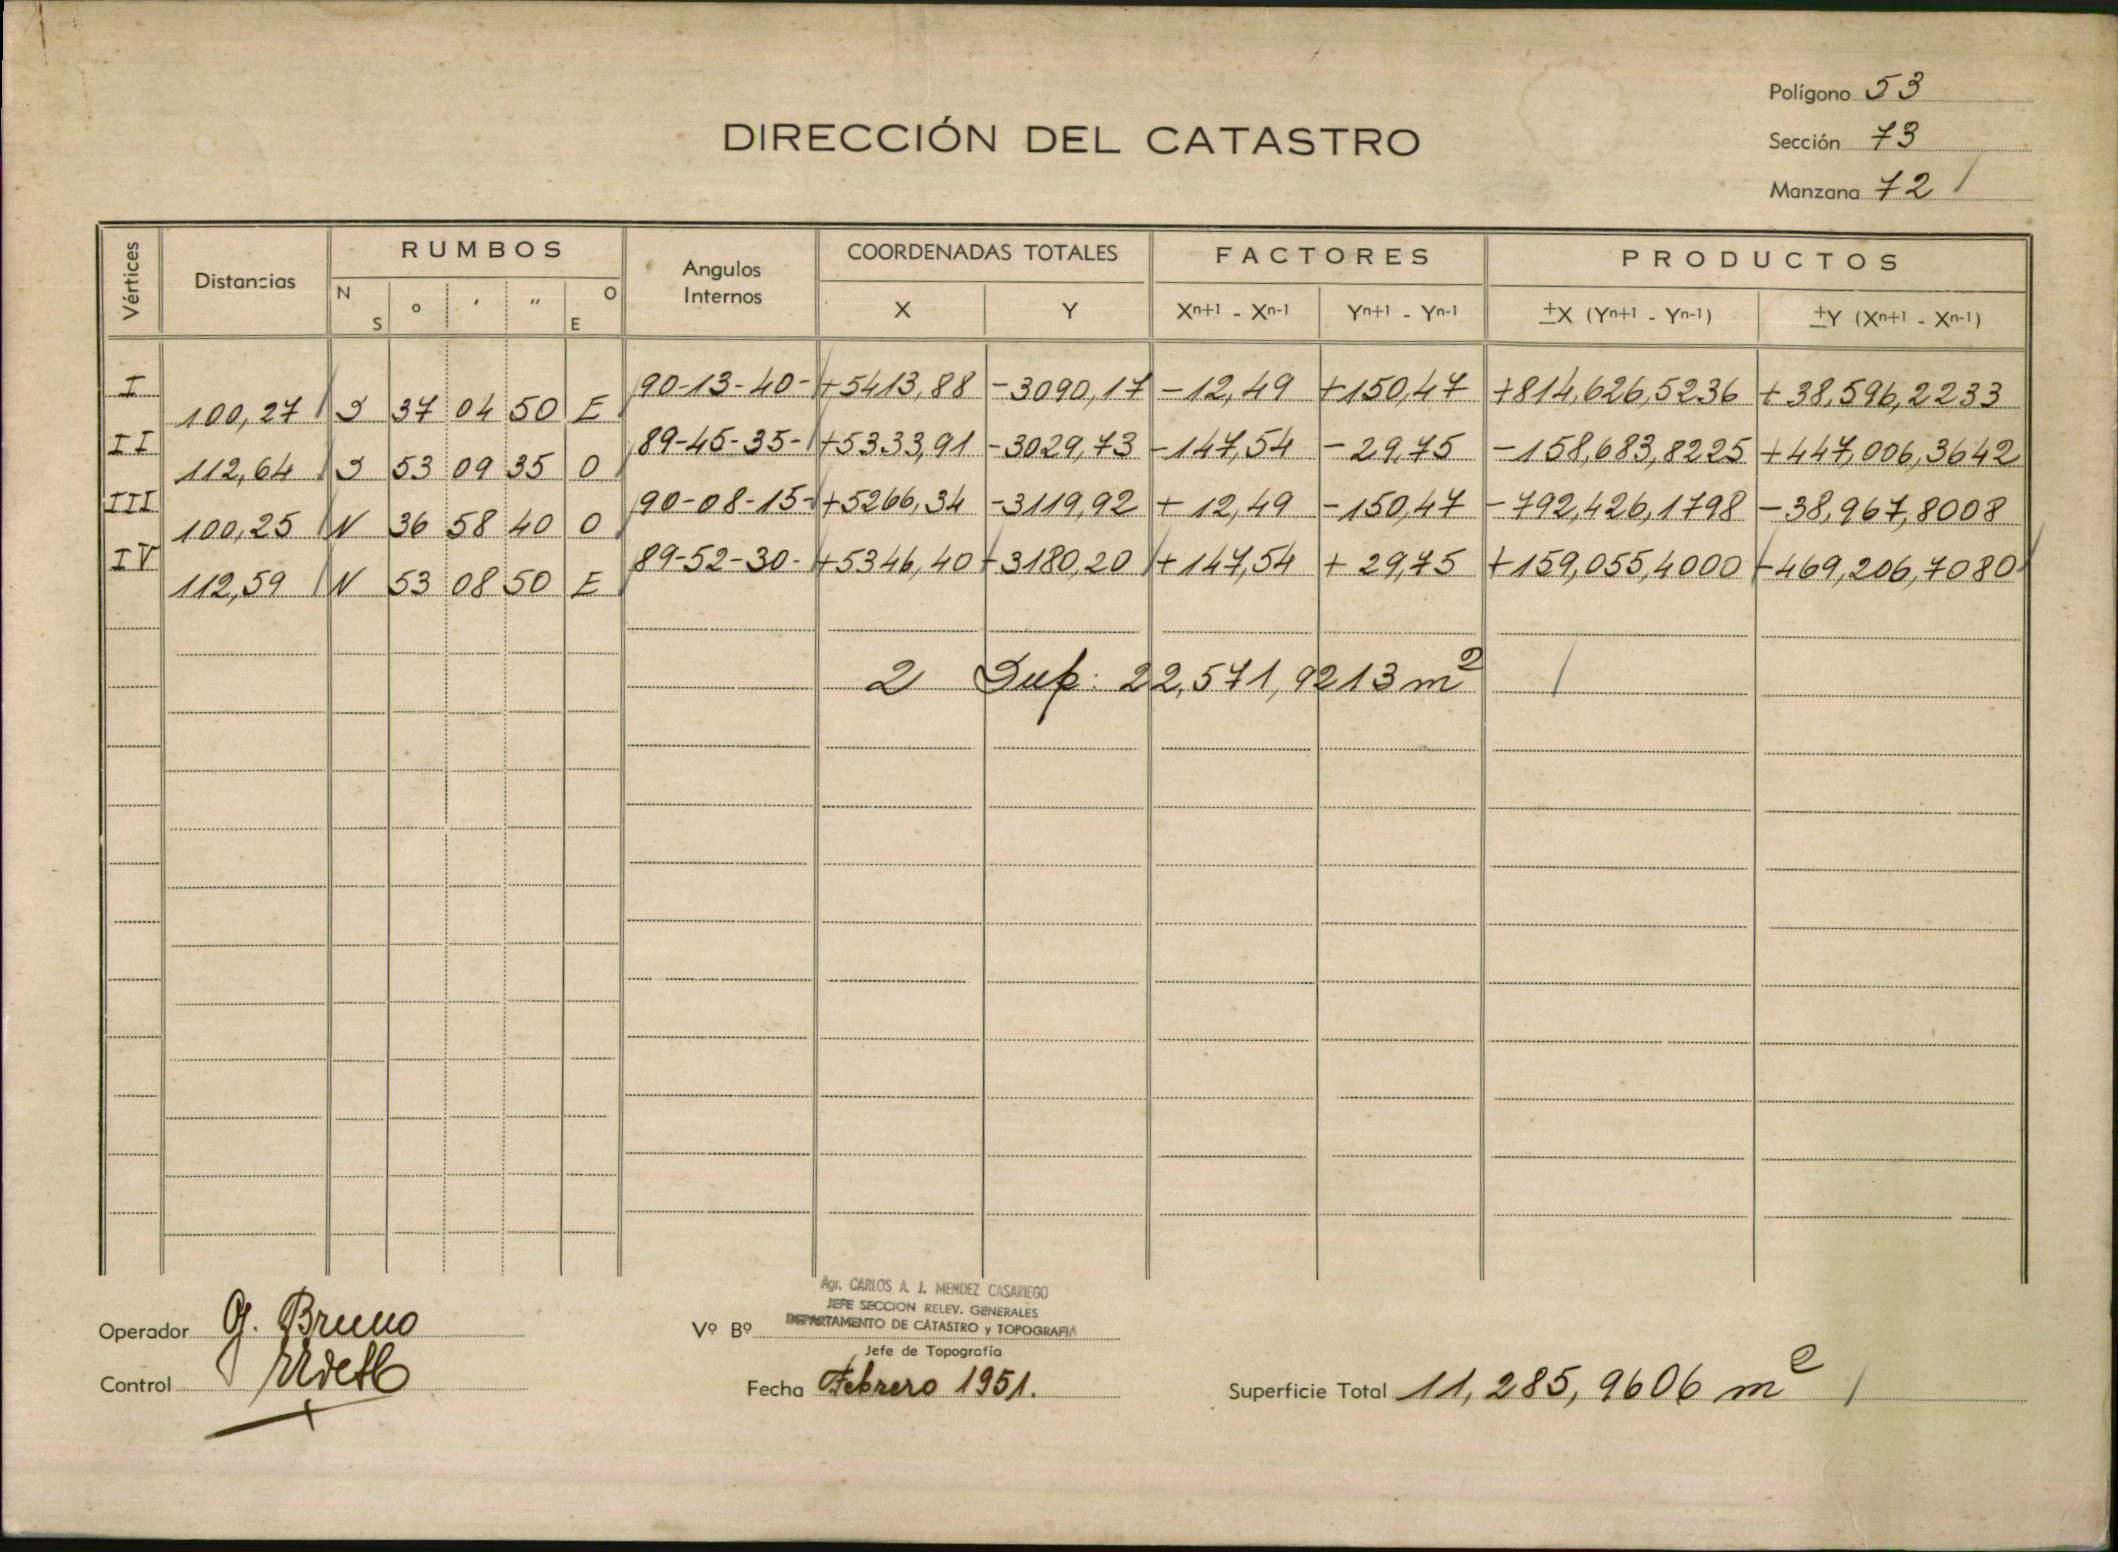 Polígono 53
DIRECCIÓN DEL CATASTRO
Sección 73
Manzana 72 /
Vértices Distancias RUMBOS Angulos Internos COORDENADAS TOTALES FACTORES PRODUCTOS
N S ° ' " O E X Y Xn+1 - Xn-1 Yn+1 - Yn-1 ±X (Yn+1 - Yn-1) ±Y (Xn+1 - Xn-1)
I 90-13-40- +5413,88 -3090,17 -12,49 +150,47 +814,626,5236 +38,596,2233
100,27 S 37 04 50 E
II 89-45-35- +5333,91 -3029,73 -147,54 -29,75 -158,683,8225 +447,006,3642
112,64 S 53 09 35 O
III 90-08-15- +5266,34 -3119,92 +12,49 -150,47 -792,426,1798 -38,967,8008
100,25 N 36 58 40 O
IV 89-52-30- +5346,40 -3180,20 +147,54 +29,75 +159,055,4000 -469,206,7080
112,59 N 53 08 50 E
2 Sup: 22,571,9213 m²
Agr. CARLOS A. J. MENDEZ CASARIEGO
JEFE SECCION RELEV. GENERALES
DEPARTAMENTO DE CATASTRO y TOPOGRAFIA
Operador G. Bruno
Vº Bº
Jefe de Topografía
Control
Fecha Febrero 1951.
Superficie Total 11,285,9606 m² /